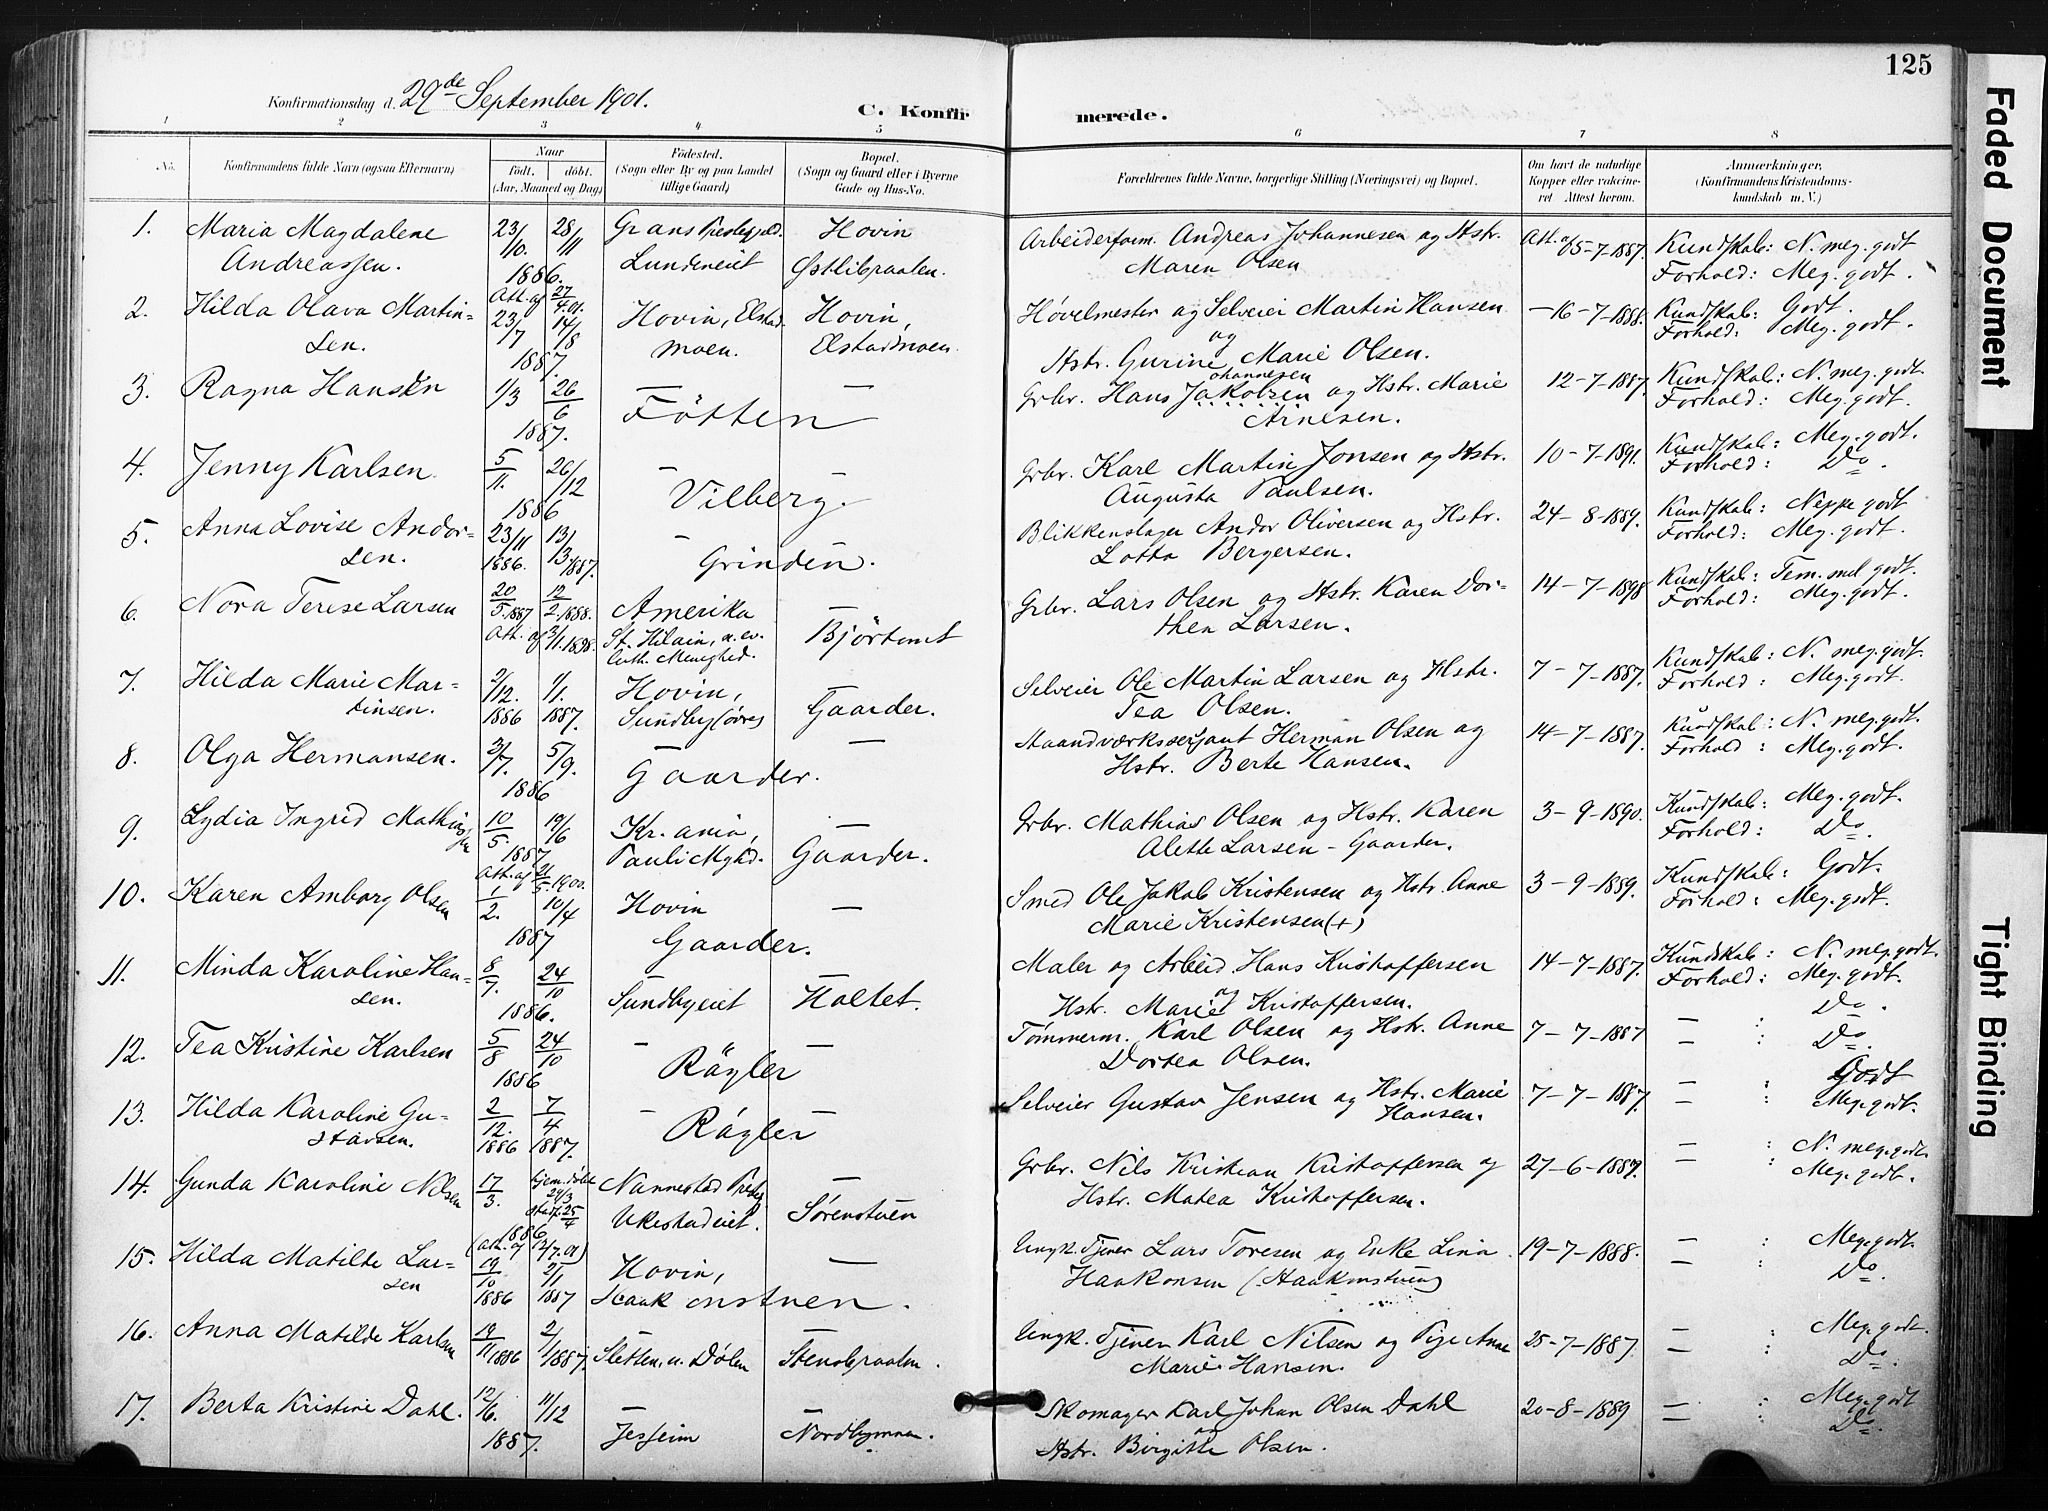 125
Konfirmationsdag d. 29de September 1901.
C. Konfirmerede.
1 2 3 4 5 6 7 8
No. Konfirmandens fulde Navn (ogsaa Efternavn) Naar født. døbt. (Aar, Maaned og Dag) Fødested. (Sogn eller By og paa Landet tillige Gaard) Bopæl. (Sogn og Gaard eller i Byerne Gade og Hus-No. Forældrenes fulde Navne, borgerlige Stilling (Næringsvei) og Bopæl. Om havt de naturlige Kopper eller vakcineret. Attest herom. Anmærkninger. (Konfirmandens Kristendomskundskab m. V.)
1. Maria Magdalene 23/10. 28/11 Grans Præstegjeld. Hovin Arbeiderform. Andreas Johannesen og Hstr. Att. af 5-7-1887. Kundskab: N. meg. godt
Andreassen. 1886. Lundeneiet Østlibraaten. Maren Olsen Forhold: Meg. godt.
Att. af 27/4.01.
2. Hilda Olava Martin- 23/7 14/8 Hovin, Elstad- Hovin, Høvelmester og Selveier Martin Hansen -16-7-1888. Kundskab: Godt.
sen. 1887. moen. Elstadmoen. og Hstr. Gurine Marie Olsen. Forhold: Meg. godt.
3. Ragna Hansen 1/3 26/6 — — Grbr. Hans Jakobsen og Hstr. Marie 12-7-1887. Kundskab: N. meg. godt
ohannesen
1887. Føtten Arnesen. Forhold: Meg. godt.
4. Jenny Karlsen. 5/11. 26/12 — — Grbr. Karl Martin Jonsen og Hstr. 10-7-1891. Kundskab: Meg. godt.
1886 Vilberg. Augusta Paulsen. Forhold: Do.
5. Anna Lovise Andor- 23/11 13/13 — Blikkenslager Andor Oliversen og Hstr. 24-8-1889. Kundskab: Neppe godt
sen. 1886. 1887. Grinden. Lotta Bergersen. Forhold: Meg. godt.
6. Nora Terese Larsen 20/5.1887 12/2.1888. Amerika — Grbr. Lars Olsen og Hstr. Karen Dor- 14-7-1898 Kundskab: Tem. mel godt.
Att. af 3/1.1898. St. Hilain, n. ev. luth. Menighed. Bjørtomt then Larsen. Forhold: Meg. godt.
7. Hilda Marie Mar- 2/12. 1/1. Hovin, — Selveier Ole Martin Larsen og Hstr. 7-7-1887. Kundskab: N. meg. godt.
tinsen. 1886 1887. Sundby (øvre) Gaarder. Tea Olsen. Forhold: Meg. godt.
8. Olga Hermansen. 3/7. 5/9. — — Haandværkssersjant Herman Olsen og 14-7-1887. Kundskab: N. meg. godt.
1886 Gaarder. Hstr. Berte Hansen. Forhold: Meg. godt.
9. Lydia Ingrid Mathissen 10/5. 19/6 Kr.ania, — Grbr. Mathias Olsen og Hstr. Karen 3-9-1890. Kundskab: Meg. godt.
1887 Pauli Mghd. Gaarder. Alette Larsen - Gaarder. Forhold: Do.
Att. af 21/5.1900.
10. Karen Amborg Olsen 1/2. 10/4 Hovin — Smed Ole Jakob Kristensen og Hstr. Anne 3-9-1889. Kundskab: Godt.
1887 Gaarder. Marie Kristensen (+) Forhold: Meg. godt.
11. Minda Karoline Han- 8/7. 24/10 — — Maler og Arbeid. Hans Kristoffersen 14-7-1887. Kundskab: N. meg. godt.
sen. 1886. Sundbyeiet Holtet. og Hstr. Marie Kristoffersen. Forhold: Meg. godt.
12. Tea Kristine Karlsen 5/8 24/10 — — Tømmerm. Karl Olsen og Hstr. Anne 7-7-1887 — : Do.
1886 Rågler Dortea Olsen. — : Do.
13. Hilda Karoline Gu- 2/12. 7/4 — — Selveier Gustav Jensen og Hstr. Marie 7-7-1887. — : Godt
stavsen. 1886 1887. Rågler Hansen. — : Meg. godt.
14. Gunda Karoline Nilsen 17/3. Hjem.døbt 29/3 stadf. 25/4 Nannestad Præstegj. — Grbr. Nils Kristian Kristoffersen og 27-6-1887. — : N. meg. godt.
1886 Ukestadeiet. Sørenstuen Hstr. Matea Kristoffersen. — : Meg. godt.
(Att. af 12/7.01)
15. Hilda Matilde Lar- 19/10 2/1 Hovin, — Ungk. Tjener Lars Toresen og Enke Lina 19-7-1888. — : Meg. godt.
sen 1886 1887 Haakonstuen. Haakonsen (Haakonstuen) — : Do.
16. Anna Matilde Karlsen 19/11 1886 2/1 1887. — — Ungk. Tjener Karl Nilsen og Pige Anne 25-7-1887. — : Meg. godt.
Sletten u. Dølen Stensbraaten. Marie Hansen. — : Do.
17. Berta Kristine Dahl. 12/6. 11/12 — — Skomager Karl Johan Olsen Dahl 20-8-1889 — : Meg. godt
1887. Jesseim Nordbymoen. og Hstr. Birgitte Olsen. — : Do.
Faded Document
Tight Binding